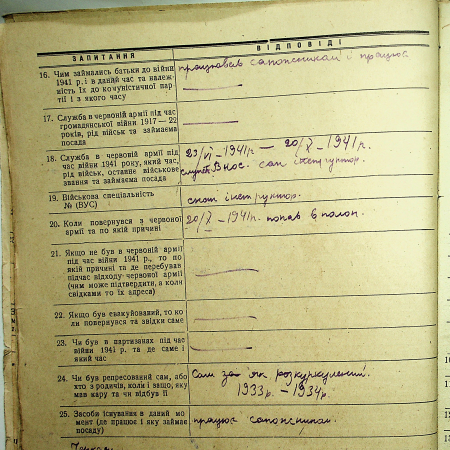 ЗАПИТАННЯ
ВІДПОВІДІ
16. Чим займались батьки до війни
1941 р. і в даний час та належ-
ність їх до комуністичної пар-
тії і з якого часу
працював сапожникам і працює
17. Служба в червоній армії під час
громадянської війни 1917—22
років, рід військ та займаєма
посада
18. Служба в червоній армії під
час війни 1941 року, який час,
рід військ, останнє військове
звання та займаєма посада
23/VI-1941р — 20/X-1941р.
сан інструктор.
19. Військова спеціальність
№ (ВУС)
сан інструктор.
20. Коли повернувся з червоної
армії та по якій причині
20/X-1941р. попав в полон.
21. Якщо не був в червоній армії
під час війни 1941 р., то по
якій причині та де перебував
підчас відходу червоної армії
(чим може підтвердити, в коли
свідками то їх адреса)
22. Якщо був евакуйований, то ко-
ли повернувся та звідки саме
23. Чи був в партизанах під час
війни 1941 р. та де саме і
який час
24. Чи був репресований сам, або
хто з родичів, коли і защо, яку
мав кару та чи відбув її
Сам як розкуркулений.
1933р. — 1934р.
25. Засоби існування в даний мо-
мент (де працює і яку займає
посаду)
працює сапожникам.